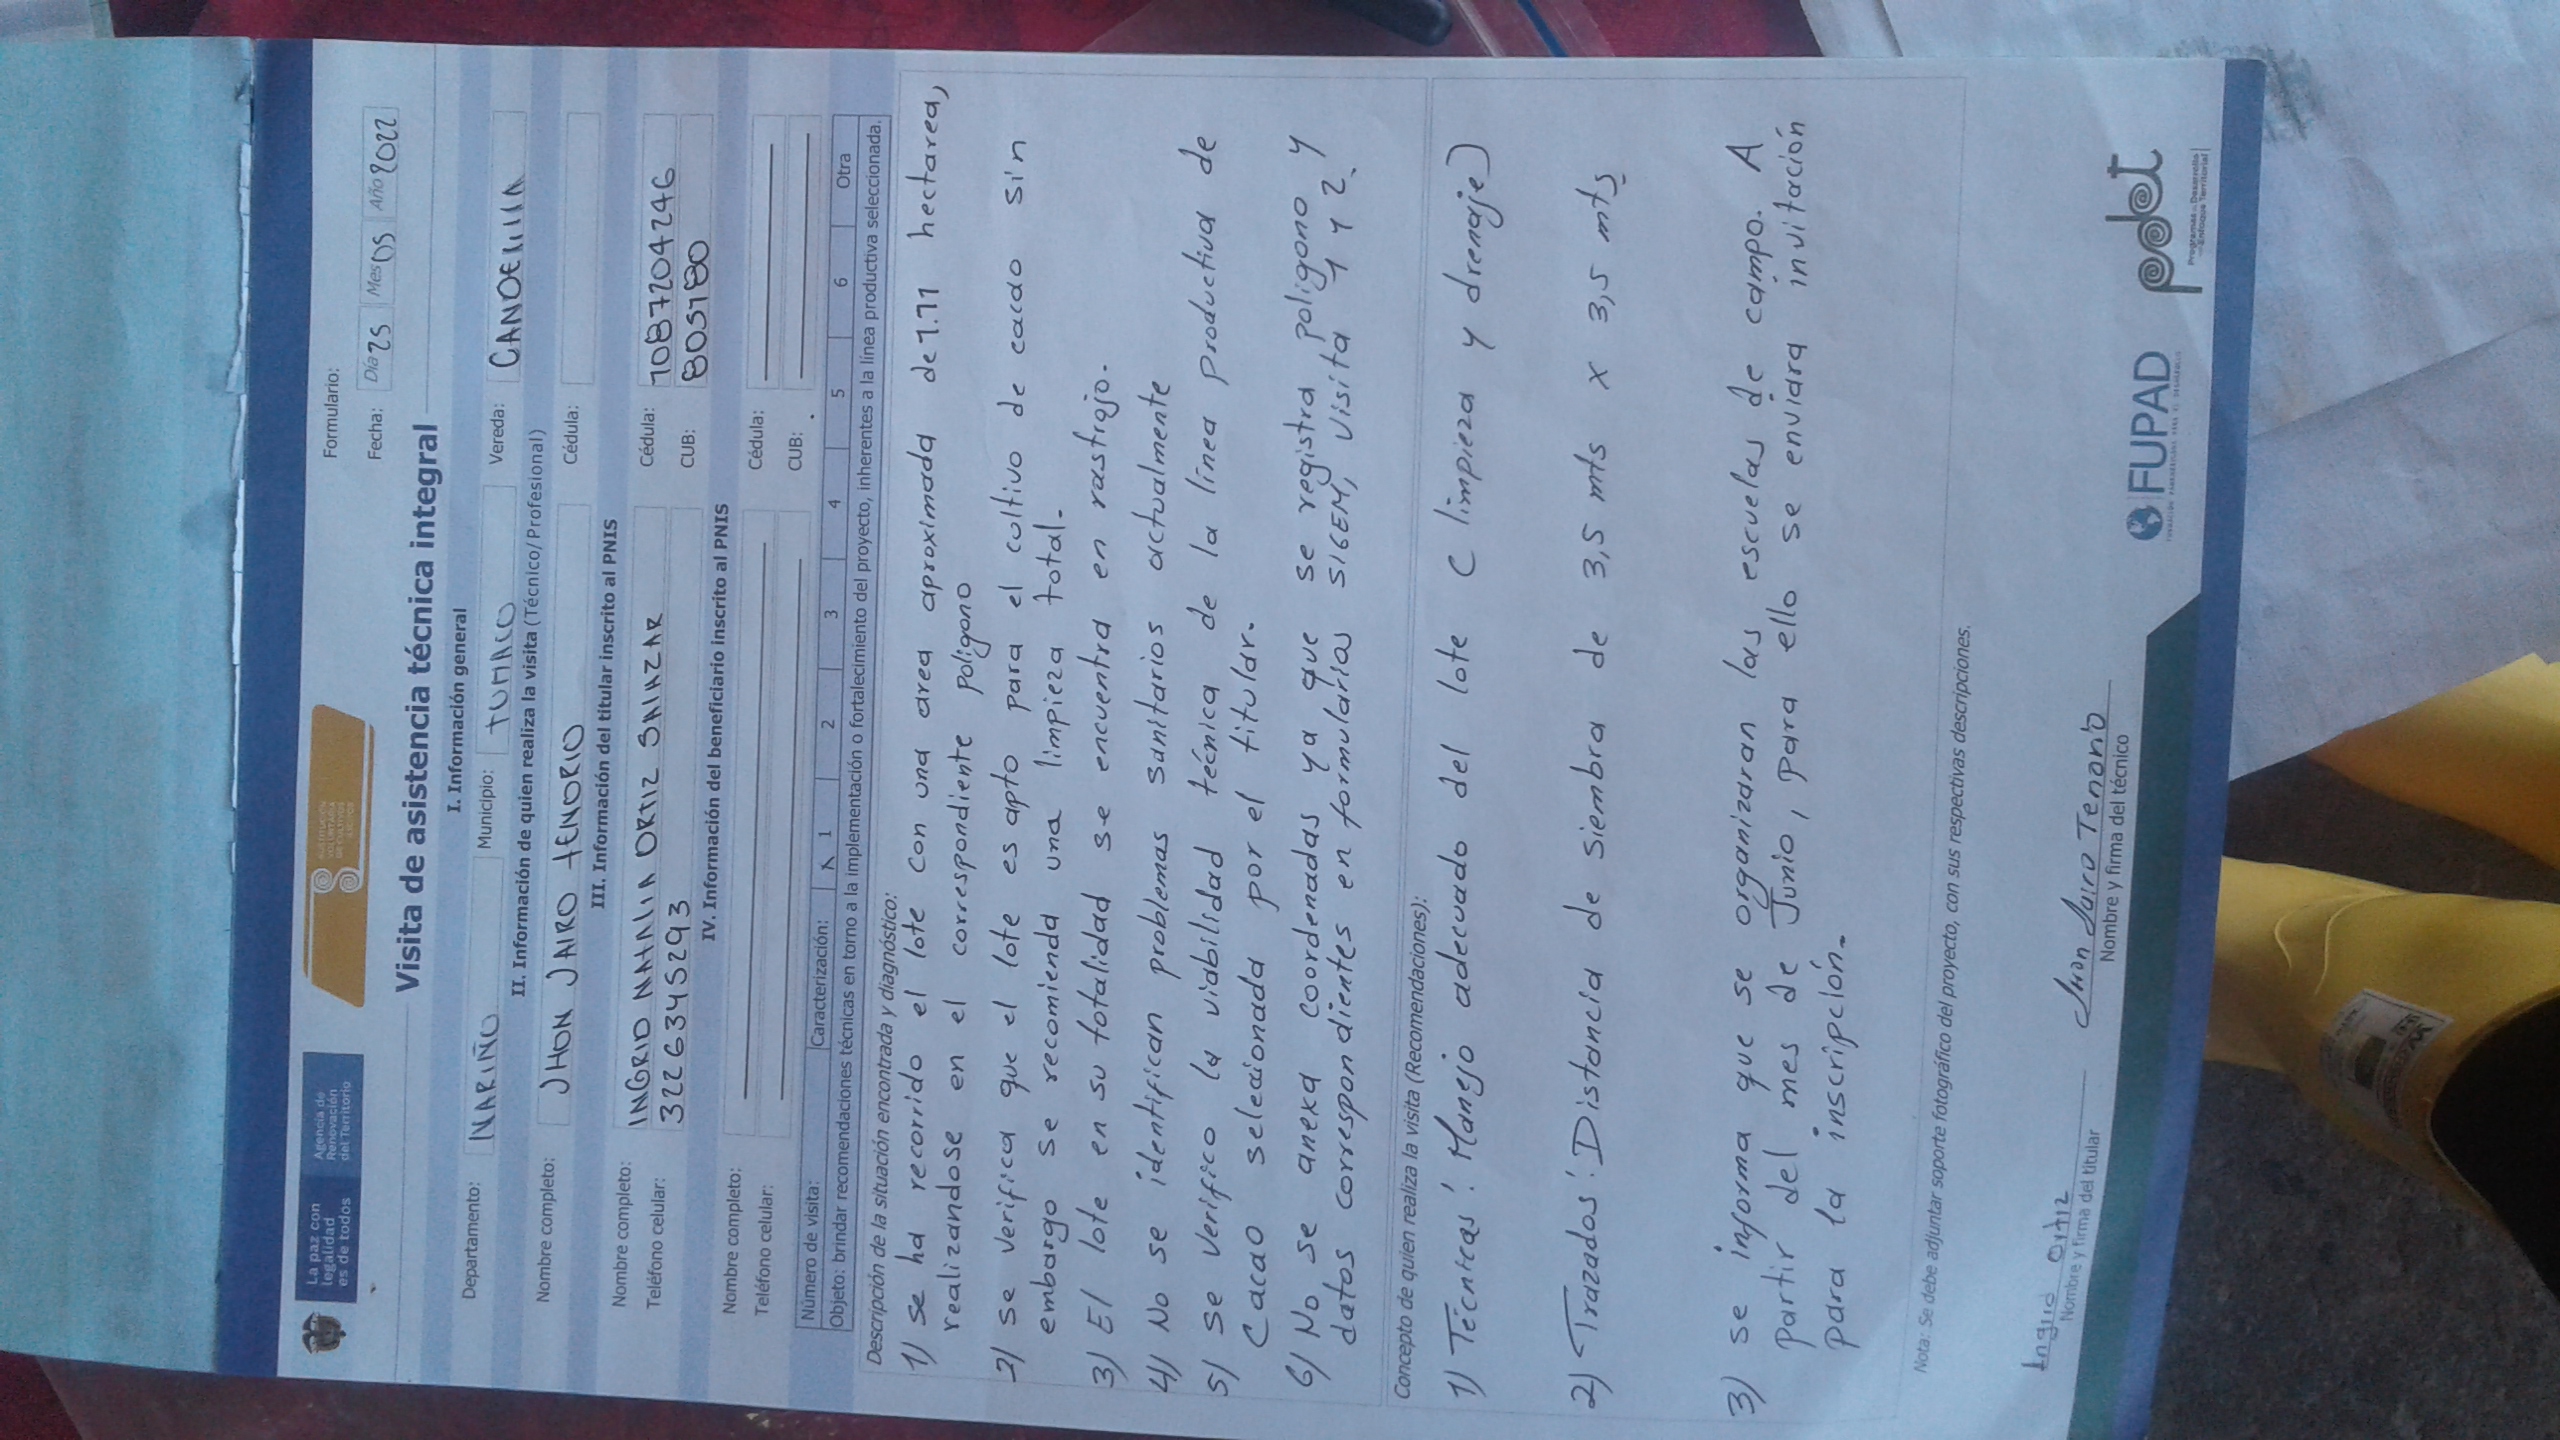 La paz con
legalidad
es de todos
Agencia de
Renovación
del Territorio
SUSTITUCIÓN
VOLUNTARIA
DE CULTIVOS
ILÍCITOS
Formulario:
Fecha: Día 25 Mes 05 Año 2022
Visita de asistencia técnica integral
I. Información general
Departamento: NARIÑO Municipio: TUMACO Vereda: CANDElIlA
II. Información de quien realiza la visita (Técnico/Profesional)
Nombre completo: JHON JAIRO TENORIO Cédula:
III. Información del titular inscrito al PNIS
Nombre completo: INGRID NATALIA ORTIZ SALAZAR Cédula: 1087204246
Teléfono celular: 3226345293 CUB: 805180
IV. Información del beneficiario inscrito al PNIS
Nombre completo: Cédula:
Teléfono celular: CUB:
Número de visita: Caracterización: X 1 2 3 4 5 6 Otra
Objeto: brindar recomendaciones técnicas en torno a la implementación o fortalecimiento del proyecto, inherentes a la línea productiva seleccionada.
Descripción de la situación encontrada y diagnóstico:
1) se ha recorrido el lote con una area aproximada de 1.11 hectarea,
realizandose en el correspondiente poligono
2) se verifica que el lote es apto para el cultivo de cacao sin
embargo se recomienda una limpieza total.
3) El lote en su totalidad se encuentra en rastrojo.
4) No se identifican problemas sanitarios actualmente
5) se verifico la viabilidad técnica de la línea productiva de
Cacao seleccionada por el titular.
6) No se anexa coordenadas ya que se registra poligono y
datos correspondientes en formularios SIGEM, visita 1 y 2. y
Concepto de quien realiza la visita (Recomendaciones):
1) Tecnicas: Manejo adecuado del lote C limpieza y drenaje)
2) Trazados: Distancia de siembra de 3,5 mts x 3,5 mts
3) se informa que se organizaran las escuelas de campo. A
partir del mes de Junio, para ello se enviara invitación
para la inscripción.
Nota: Se debe adjuntar soporte fotográfico del proyecto, con sus respectivas descripciones.
Ingrid Ortiz
Nombre y firma del titular
Jhon Jairo Tenorio
Nombre y firma del técnico
FUPAD
pdet
Programas de Desarrollo
con Enfoque Territorial